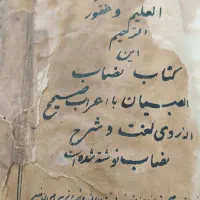 العلیم و غفور
الرحیم
این
کتاب نصاب
الصبیان با اعراب صحیح
از روی لغت و شرح
نصاب نوشته شده است